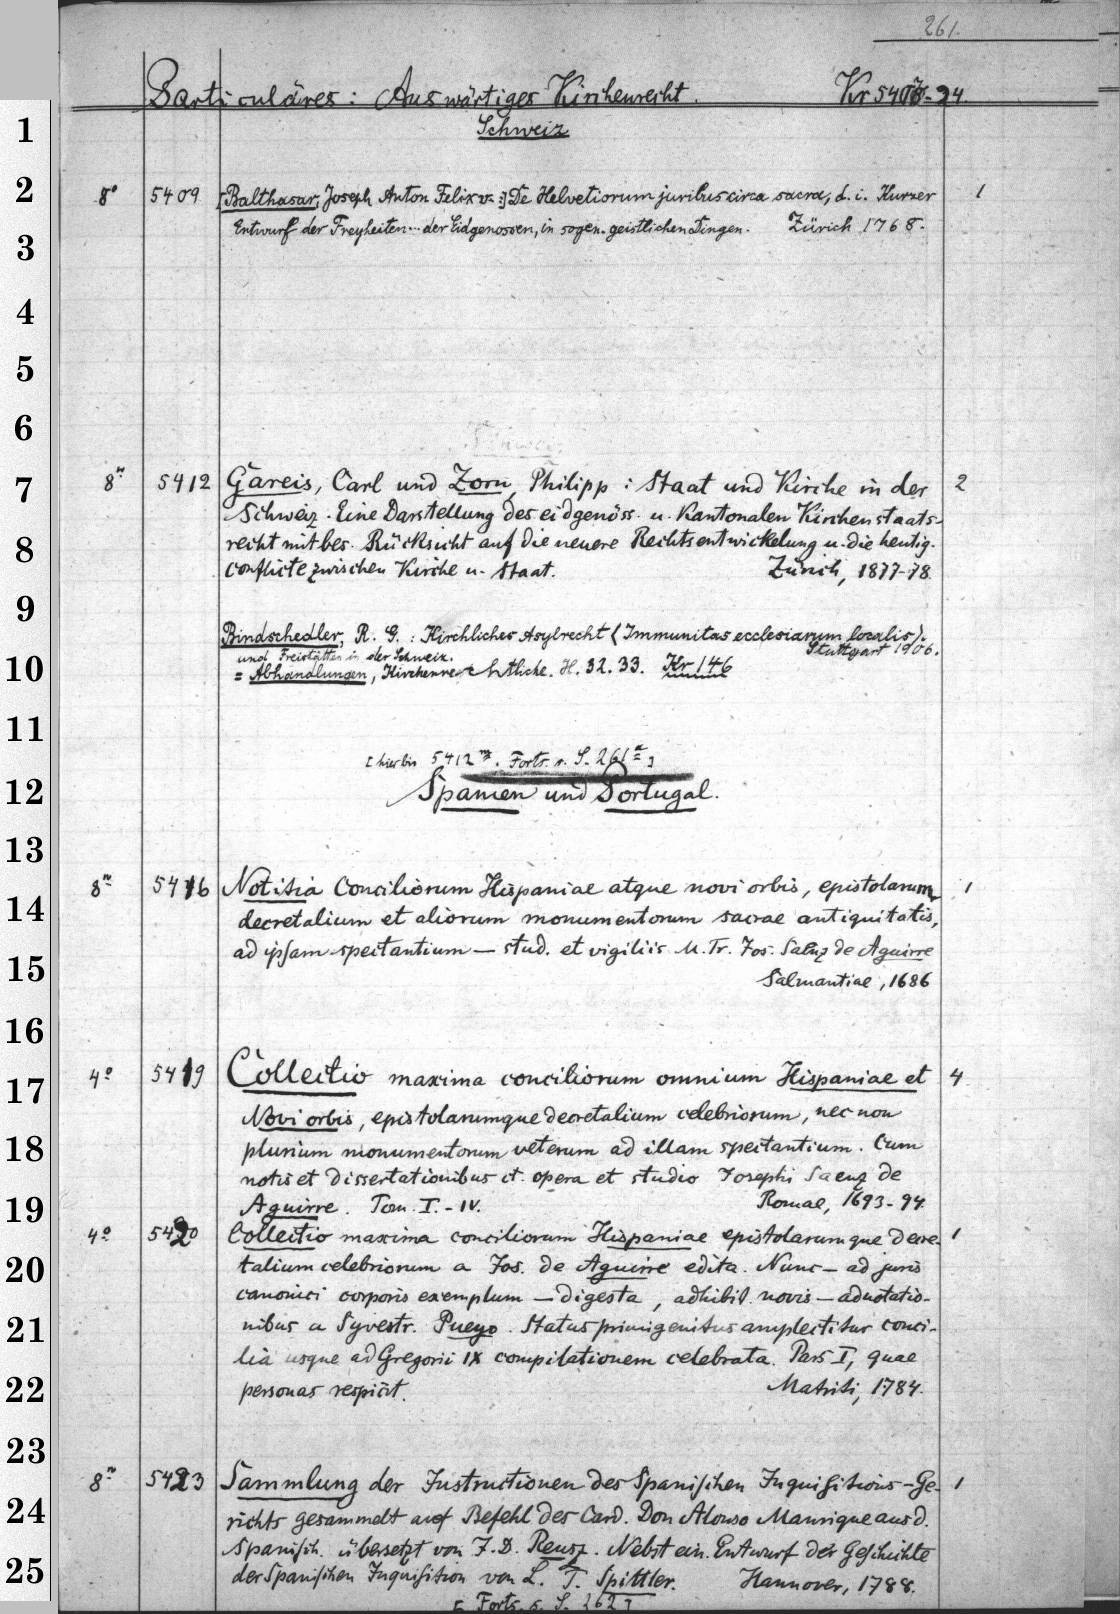 261.
Particuläres: Auswärtiges Kirchenrecht. Kr 5408-24.
1 Schweiz
2 8° 5409 [Balthasar, Joseph Anton Felix v.:] De Helvetiorum juribus circa sacra, d. i. Kurzer 1
Entwurf der Freyheiten... der Eidgenossen, in sogen. geistlichen Dingen. Zürich 1768.
3
4
5
6
7 8° 5412 Gareis, Carl und Zorn, Philipp: Staat und Kirche in der 2
Schweiz. Eine Darstellung des eidgenöss. u. Kantonalen Kirchenstaats-
8 recht mit bes. Rücksicht auf die neuere Rechtsentwickelung u. die heutig.
conflicte zwischen Kirche u. Staat. Zürich, 1877-78.
9
Bindschedler, R. G.: Kirchliches Asylrecht (Immunitas ecclesiarum localis)
und Freistätten in der Schweiz. Stuttgart 1906.
10 = Abhandlungen, Kirchenrechtliche. H. 32. 33. Kr 146
11
[hierbin 5412m. Forts. s. S. 261a]
12 Spanien und Portugal.
13
8° 5416 Notitia Conciliorum Hispaniae atque novi orbis, epistolarum 1
14 decretalium et aliorum monumentorum sacrae antiquitatis,
ad ipsam spectantium — stud. et vigiliis M. Fr. Jos. Saenz de Aguirre
15 Salmantiae, 1686
16
17 4° 5419 Collectio maxima conciliorum omnium Hispaniae et 4
Novi orbis, epistolarumque decretalium celebriorum, nec non
18 plurium monumentorum veterum ad illam spectantium. Cum
notis et dissertationibus et opera et studio Josephi Saenz de
19 Aguirre. Tom. I.-IV. Romae, 1693-94.
4° 5420 Collectio maxima conciliorum Hispaniae epistolarumque decre- 1
20 talium celebriorum a Jos. de Aguirre edita. Nunc — ad juris
canonici corporis exemplum — digesta, adhibit. novis — adnotatio-
21 nibus a Sylvestr. Pueyo. Status primigenitus amplectitur conci-
lia usque ad Gregorii IX compilationem celebrata. Pars I, quae
22 personas respicit. Matriti, 1784.
23
8° 5423 Sammlung der Instructionen des Spanischen Inquisitions-Ge- 1
24 richts gesammelt auf Befehl des Card. Don Alonso Manrique aus d.
Spanisch. übersetzt von J. D. Reusz. Nebst ein. Entwurf der Geschichte
25 der Spanischen Inquisition von L. T. Spittler. Hannover, 1788.
[Forts. s. S. 262]